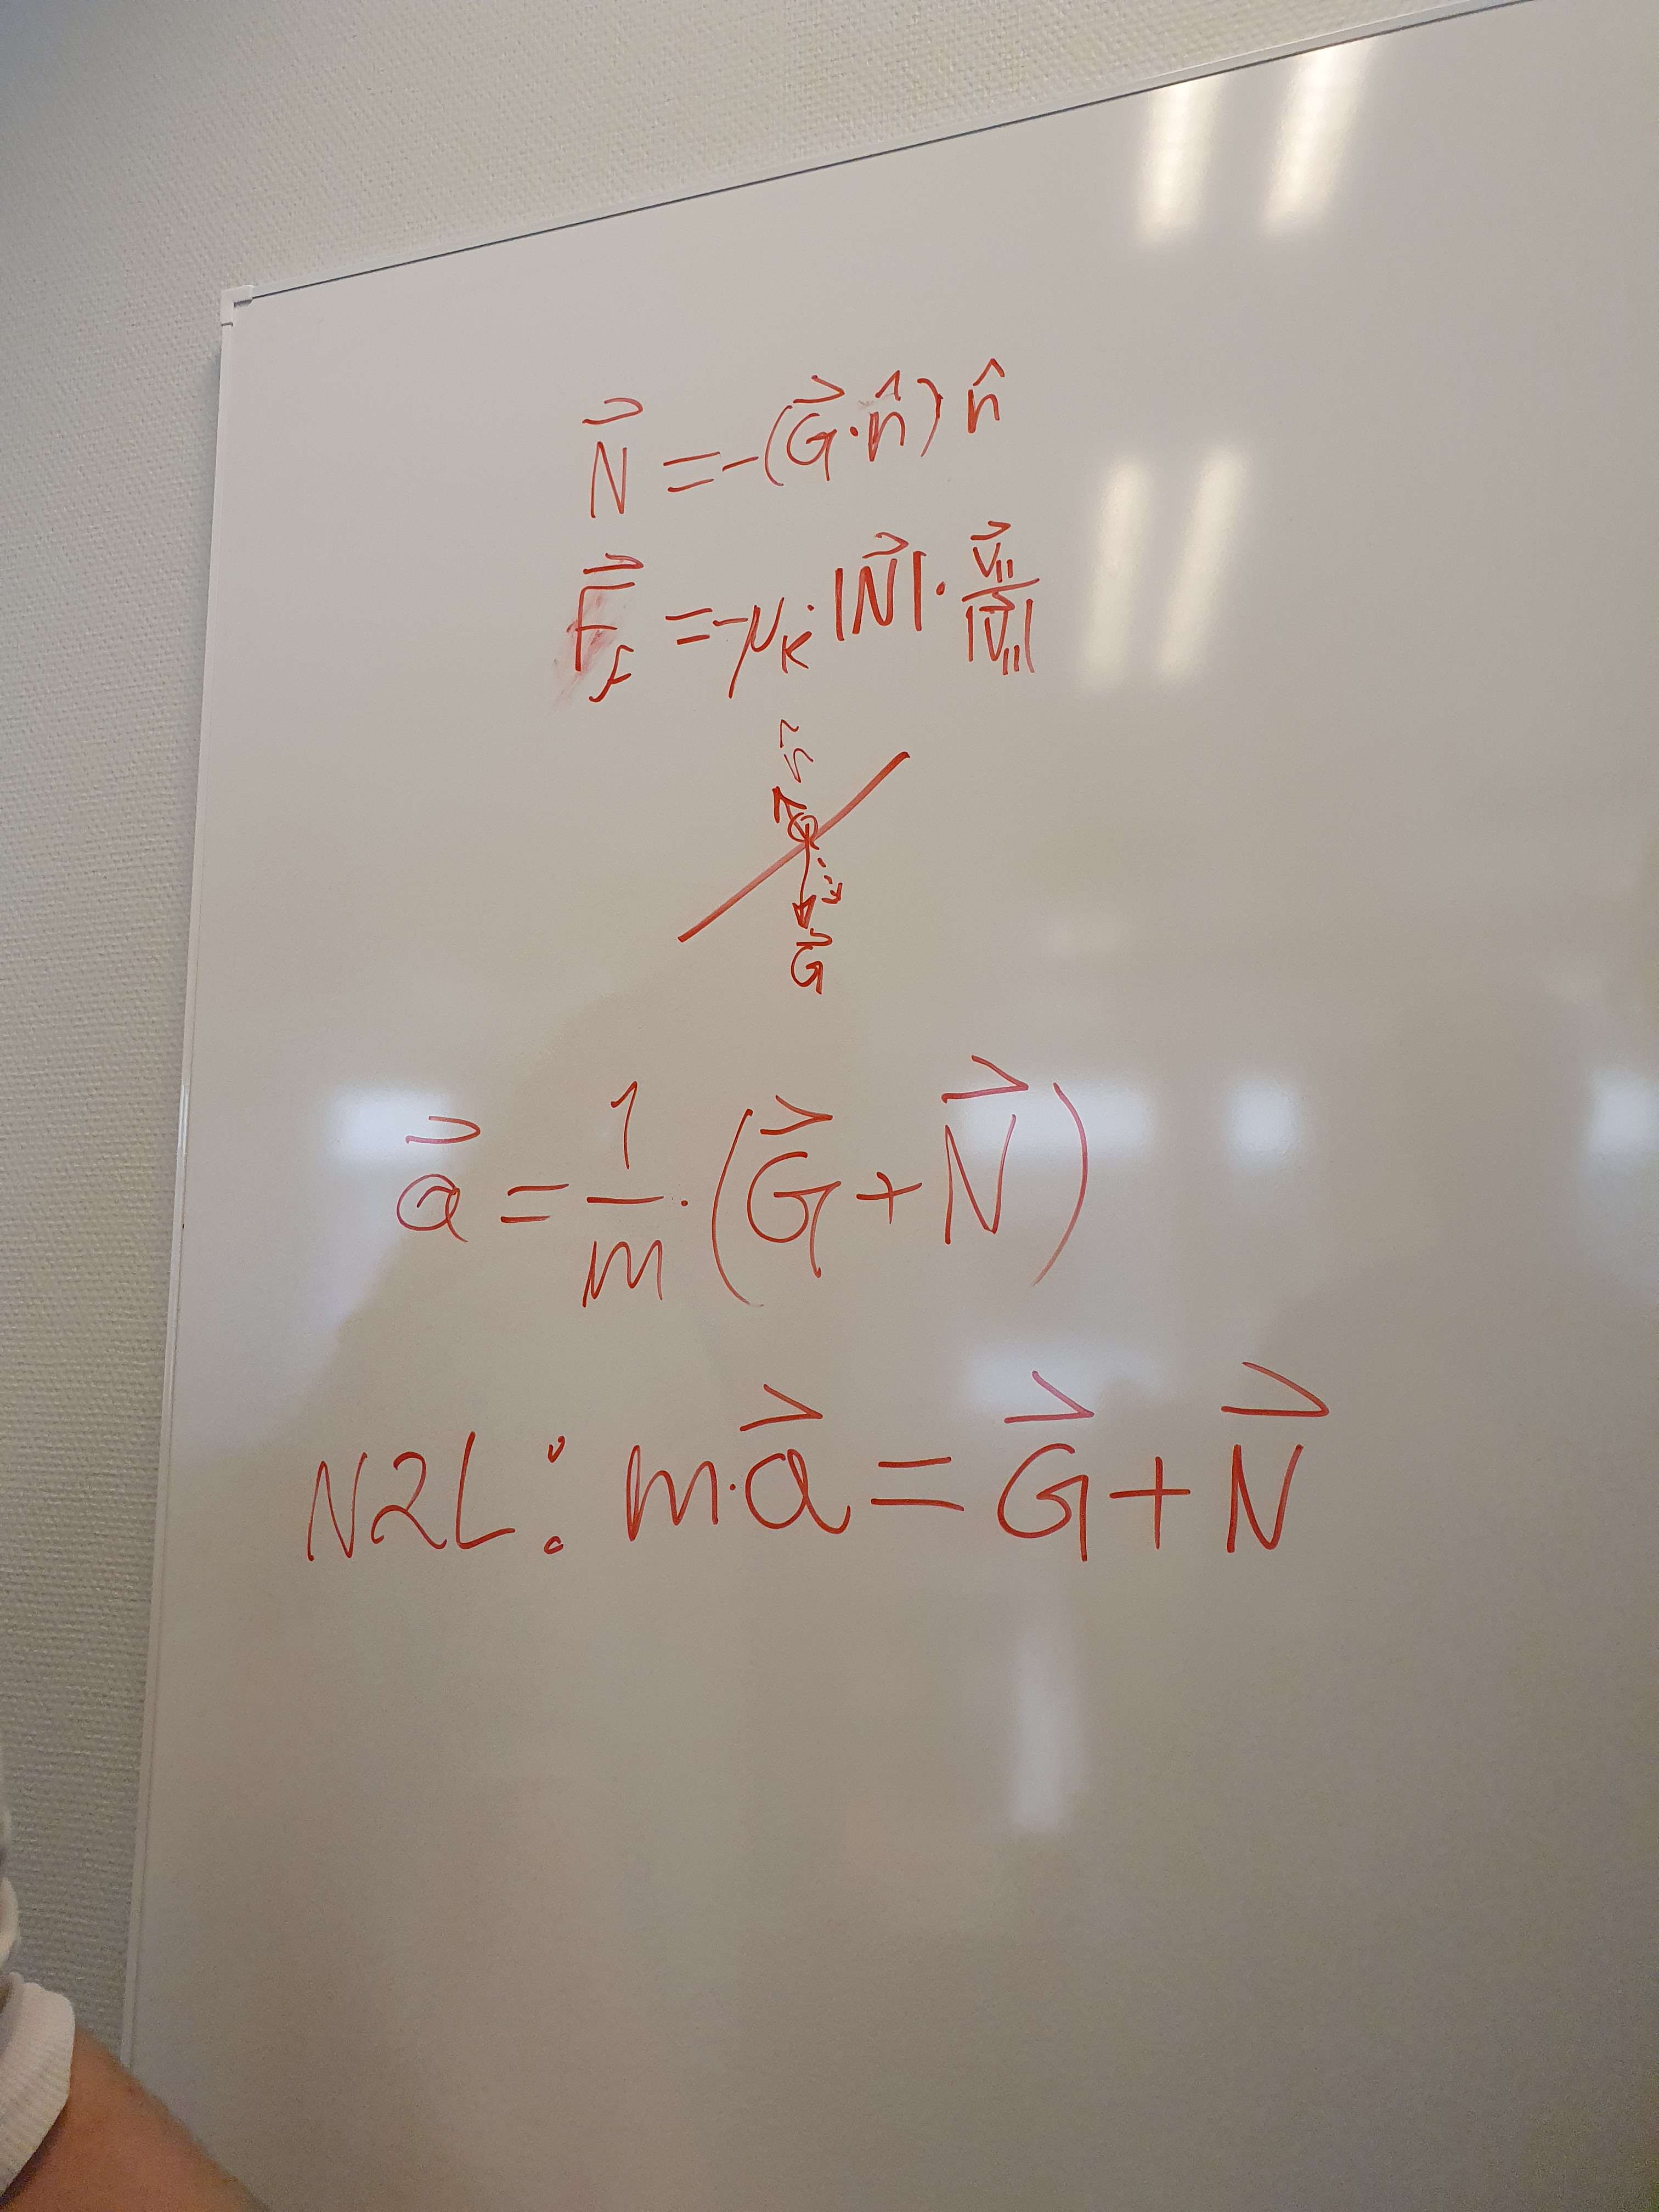 N⃗ = -(G⃗·n̂) n̂
F⃗_f = -μ_K · |N⃗| · v⃗_∥ / |v⃗_∥|
G⃗
a⃗ = 1/m · (G⃗ + N⃗)
N2L: m·a⃗ = G⃗ + N⃗